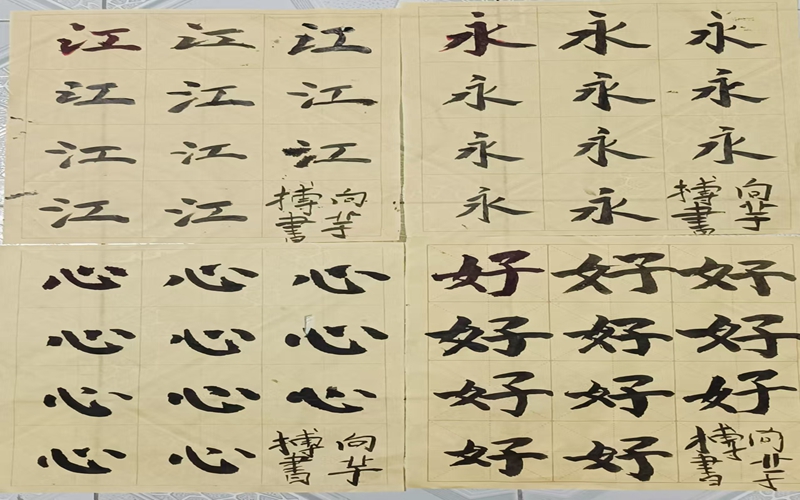 江 江 江
江 江 江
江 江 江
江 江
向
搏書
永 永 永
永 永 永
永 永 永
永 永
向
搏書
心 心 心
心 心 心
心 心 心
心 心
向
搏書
好 好 好
好 好 好
好 好 好
好 好
向
搏書